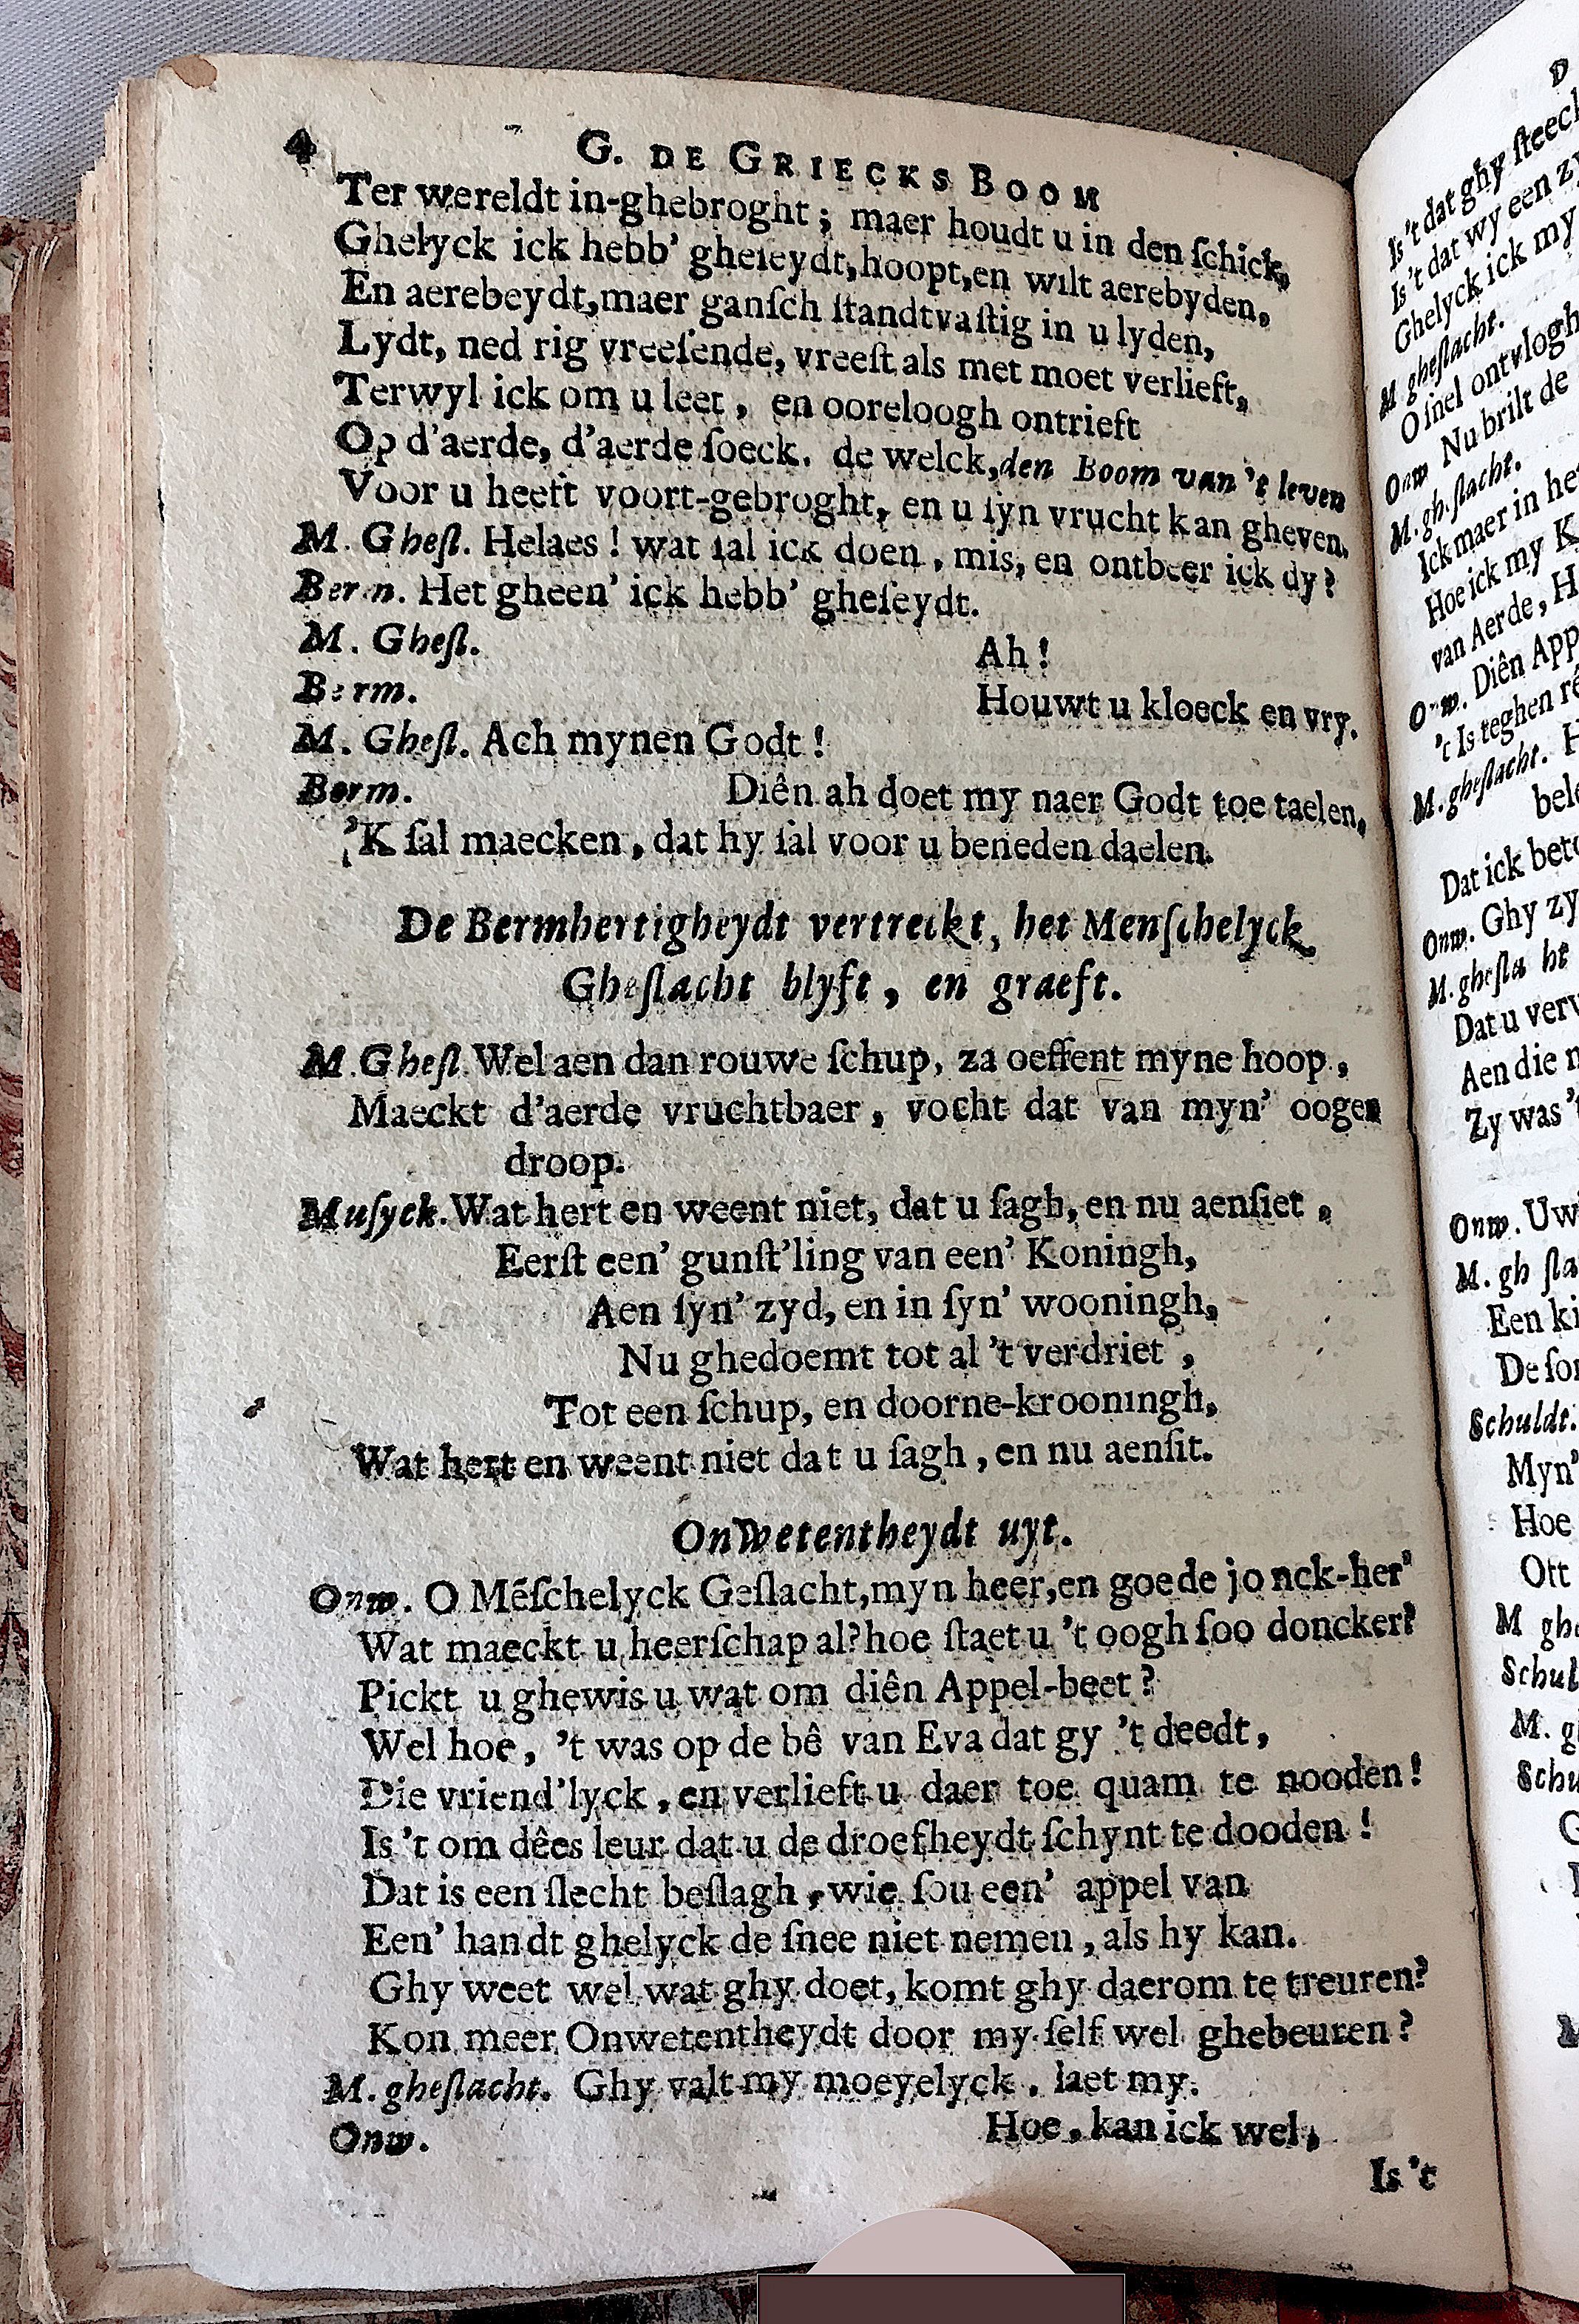 4 G. DE GRIECKS BOOM
Ter wereldt in-ghebroght ; maer houdt u in den ſchick,
Ghelyck ick hebb' gheſeydt, hoopt, en wilt aerebyden,
En aerebeydt, maer ganſch ſtandtvaſtig in u lyden,
Lydt, ned rig vreeſende, vreeſt als met moet verlieft,
Terwyl ick om u leet , en ooreloogh ontrieft
Op d'aerde, d'aerde ſoeck. de welck, den Boom van 't leven
Voor u heeft voort-gebroght, en u ſyn vrucht kan gheven.
M. Gheſl. Helaes ! wat ſal ick doen , mis, en ontbeer ick dy ?
Berm. Het gheen' ick hebb' gheſeydt.
M. Gheſl. Ah !
Berm. Houwt u kloeck en vry.
M. Gheſl. Ach mynen Godt !
Berm. Diên ah doet my naer Godt toe taelen,
'K ſal maecken , dat hy ſal voor u beneden daelen.
De Bermhertigheydt vertreckt, het Menſchelyck
Gheſlacht blyft , en graeft.
M. Gheſl. Wel aen dan rouwe ſchup, za oeffent myne hoop ,
Maeckt d'aerde vruchtbaer , vocht dat van myn' oogen
droop.
Muſyck. Wat hert en weent niet, dat u ſagh, en nu aenſiet ,
Eerſt een' gunſt'ling van een' Koningh,
Aen ſyn' zyd, en in ſyn' wooningh,
Nu ghedoemt tot al 't verdriet ,
Tot een ſchup, en doorne-krooningh,
Wat hert en weent niet dat u ſagh , en nu aenſit.
Onwetentheydt uyt.
Onw. O Mẽſchelyck Geſlacht, myn heer, en goede jonck-her'
Wat maeckt u heerſchap al? hoe ſtaet u 't oogh ſoo doncker?
Pickt u ghewis u wat om diên Appel-beet ?
Wel hoe , 't was op de bê van Eva dat gy 't deedt ,
Die vriend'lyck , en verlieft u daer toe quam te nooden !
Is 't om dêes leur dat u de droefheydt ſchynt te dooden !
Dat is een ſlecht beſlagh , wie ſou een' appel van
Een' handt ghelyck de ſnee niet nemen , als hy kan.
Ghy weet wel wat ghy doet, komt ghy daerom te treuren?
Kon meer Onwetentheydt door my ſelf wel ghebeuren ?
M. gheſlacht. Ghy valt my moeyelyck , laet my.
Onw. Hoe , kan ick wel,
Is 't
D
Is 't dat ghy ſteeck
Is 't dat wy een zy
Ghelyck ick my
M gheſlacht.
O ſnel ontvlogh
Onw Nu brilt de
M. gh. ſlacht.
Ick maer in het
Hoe ick my K
van Aerde , H
Onw. Diên App
't Is teghen re
M. gheſlacht. H
bele
Dat ick beto
Onw. Ghy zy
M. gheſla ht
Dat u verw
Aen die n
Zy was 't
Onw. Uw
M. gh ſla
Een ki
De ſon
Schuldt.
Myn'
Hoe
Ott
M ghe
Schul
M. g
Schu